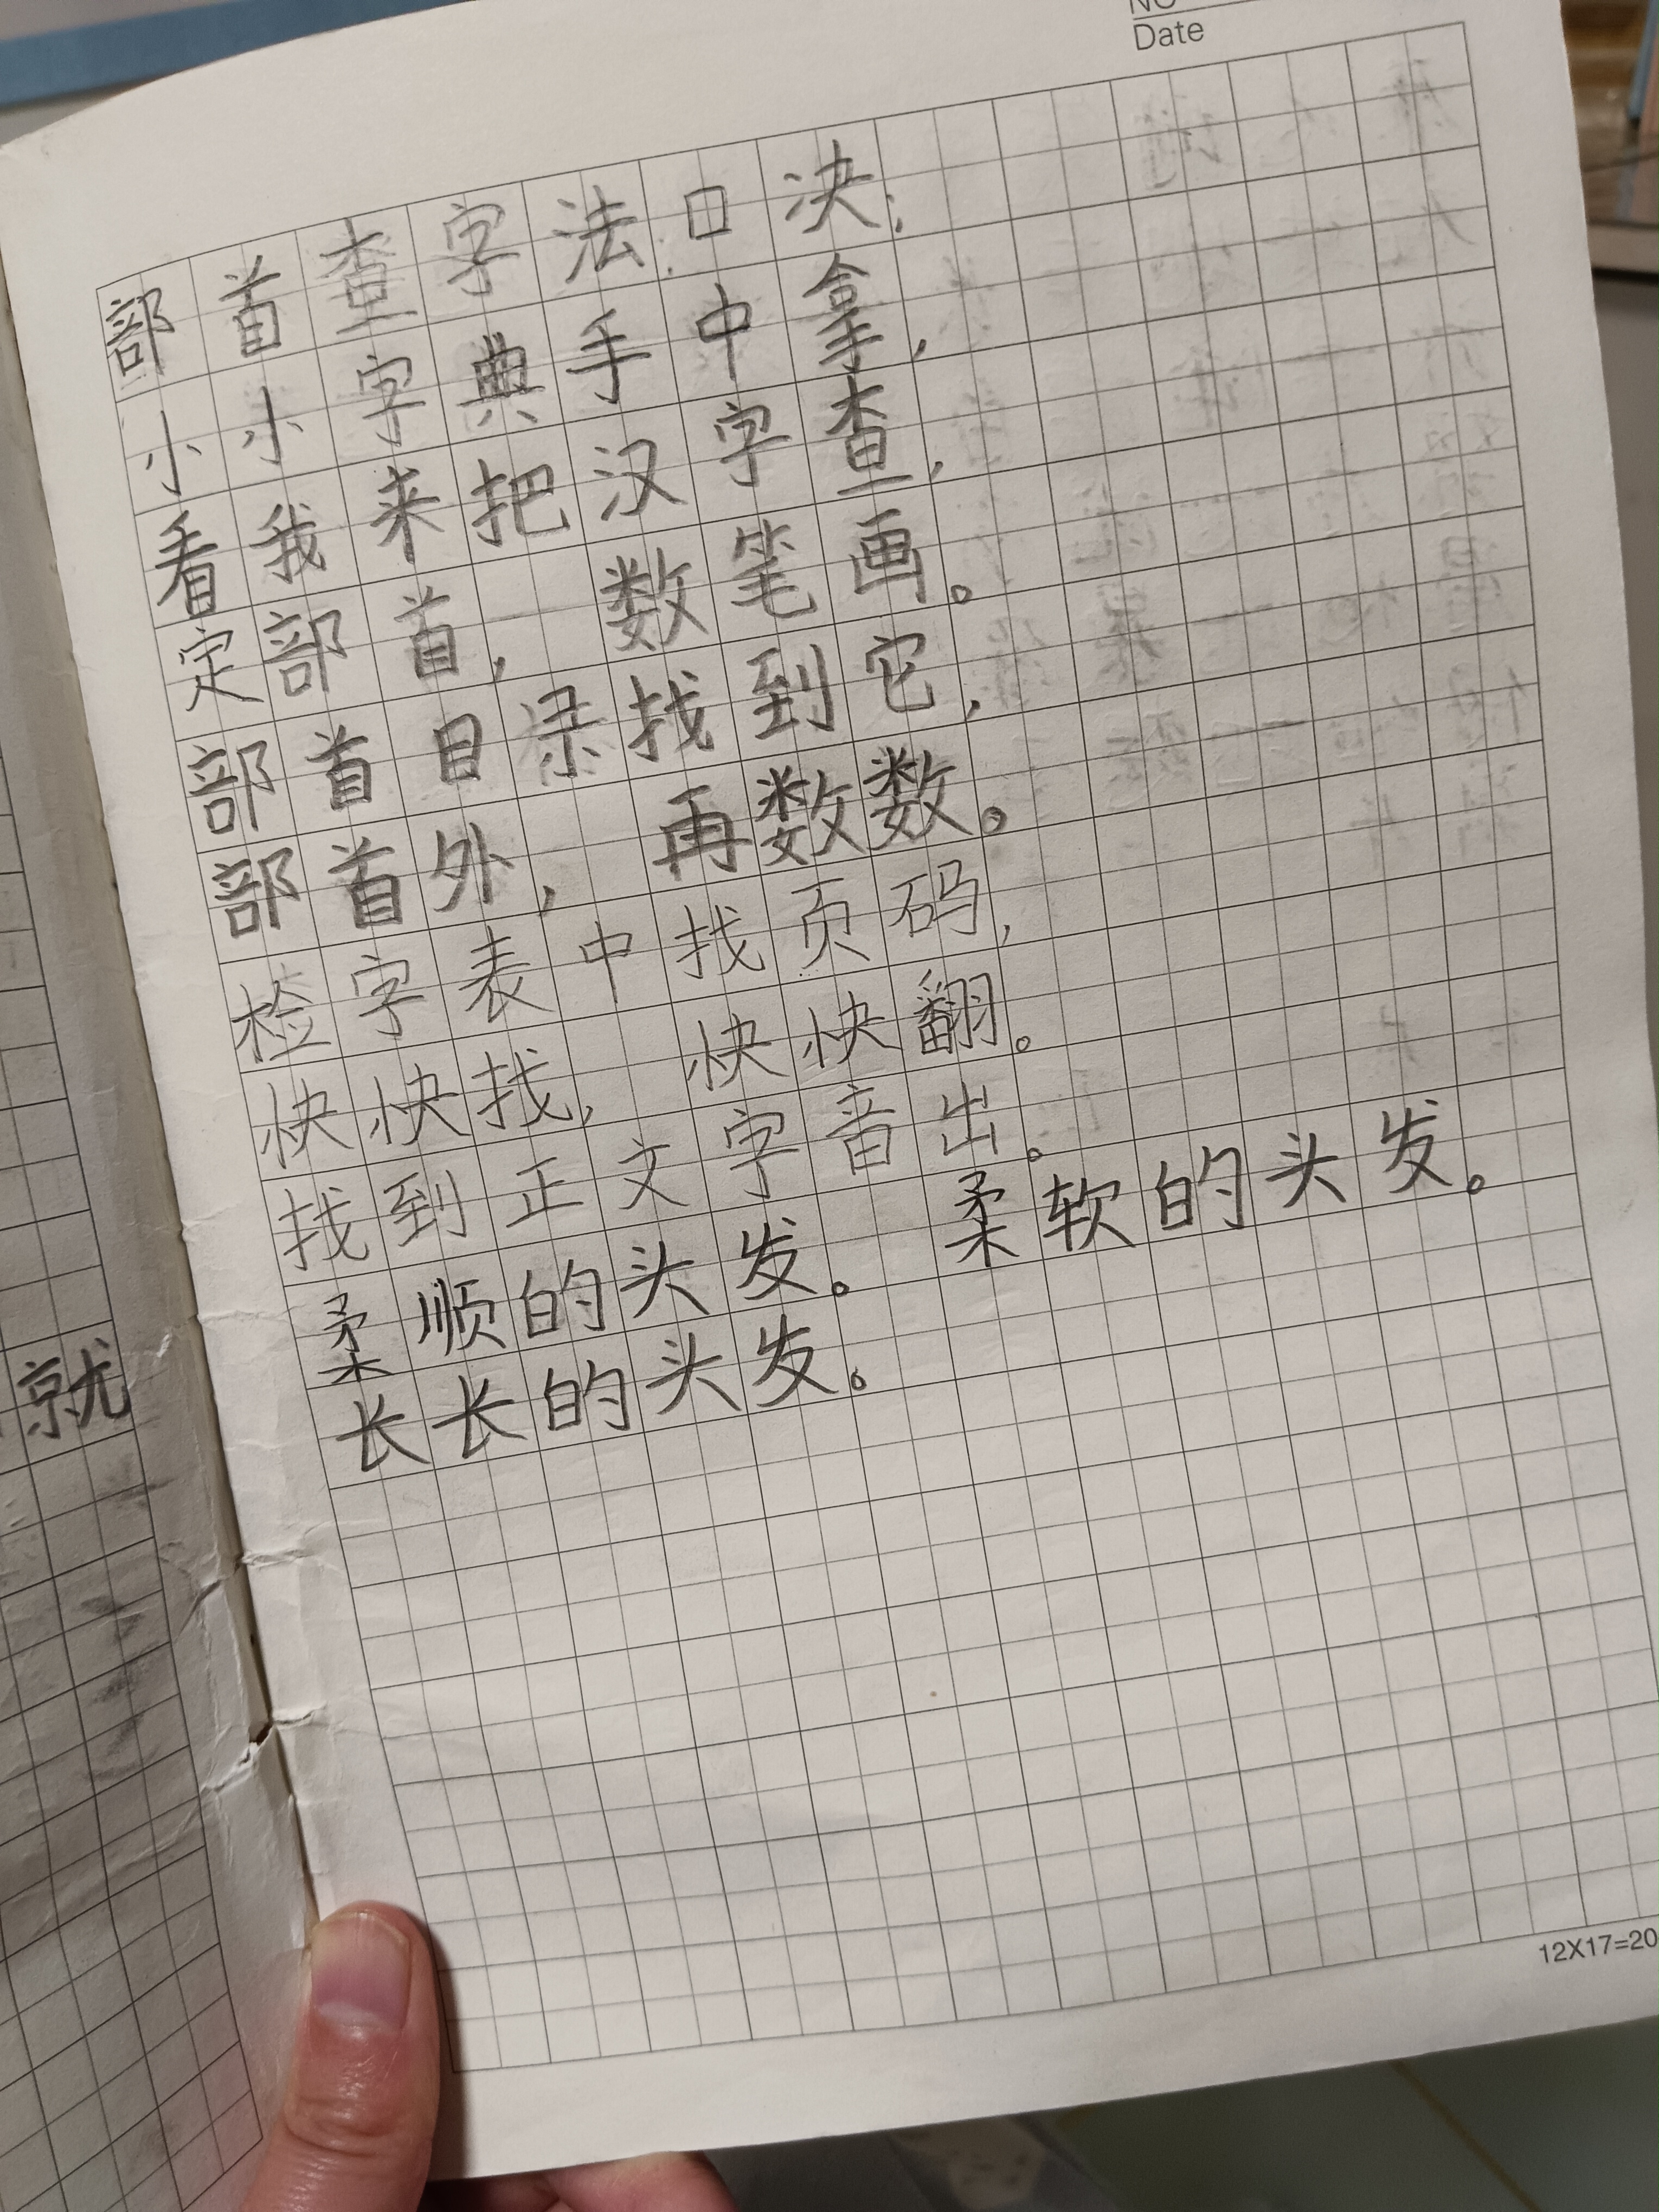 NO
Date
部首查字法口决:
小小字典手中拿,
看我来把汉字查,
定部首, 数笔画。
部首目录找到它,
部首外, 再数数。
检字表中找页码,
快快找, 快快翻。
找到正文字音出。
柔顺的头发。 柔软的头发。
长长的头发。
就
12X17=20